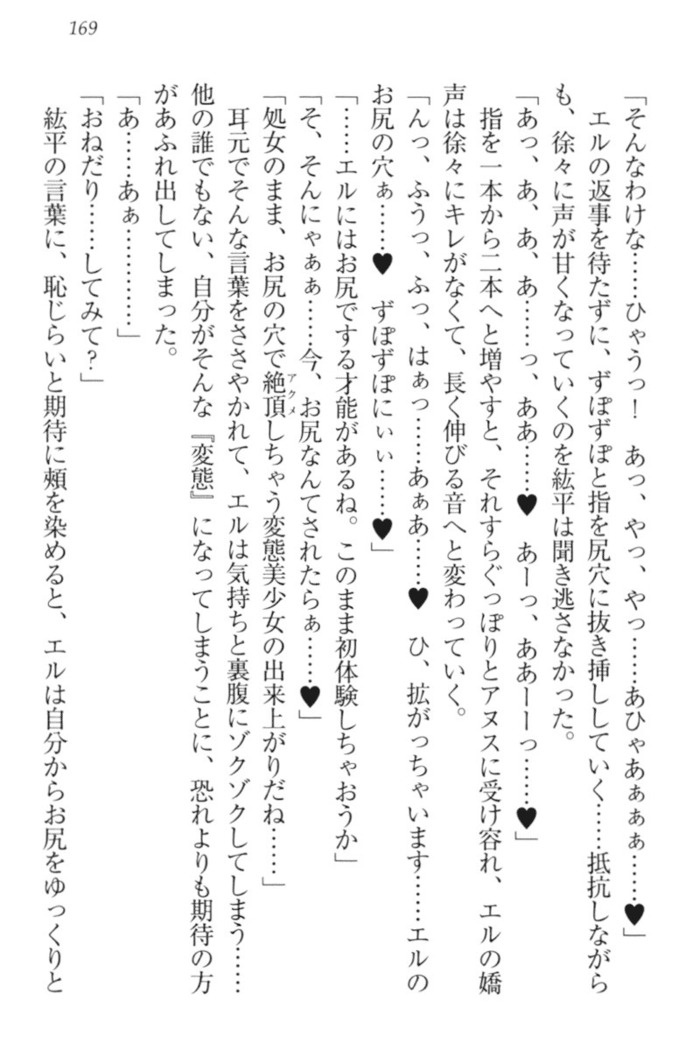 169
「そんなわけな……ひゃうっ！　あっ、やっ、やっ……あひゃあぁぁぁ……♥」
エルの返事を待たずに、ずぽずぽと指を尻穴に抜き挿ししていく……抵抗しながら
も、徐々に声が甘くなっていくのを紘平は聞き逃さなかった。
「あっ、あ、あ、あ……っ、ああ……♥　あーっ、ああーーっ……♥」
指を一本から二本へと増やすと、それすらぐっぽりとアヌスに受け容れ、エルの嬌
声は徐々にキレがなくて、長く伸びる音へと変わっていく。
「んっ、ふうっ、ふっ、はぁっ……あぁあ……♥　ひ、拡がっちゃいます……エルの
お尻の穴ぁ……♥　ずぽずぽにぃぃ……♥」
「……エルにはお尻でする才能があるね。このまま初体験しちゃおうか」
「そ、そんにゃぁぁ……今、お尻なんてされたらぁ……♥」
「処女のまま、お尻の穴で絶頂アクメしちゃう変態美少女の出来上がりだね……」
耳元でそんな言葉をささやかれて、エルは気持ちと裏腹にゾクゾクしてしまう……
他の誰でもない、自分がそんな『変態』になってしまうことに、恐れよりも期待の方
があふれ出してしまった。
「あ……あぁ…………」
「おねだり……してみて？」
紘平の言葉に、恥じらいと期待に頬を染めると、エルは自分からお尻をゆっくりと